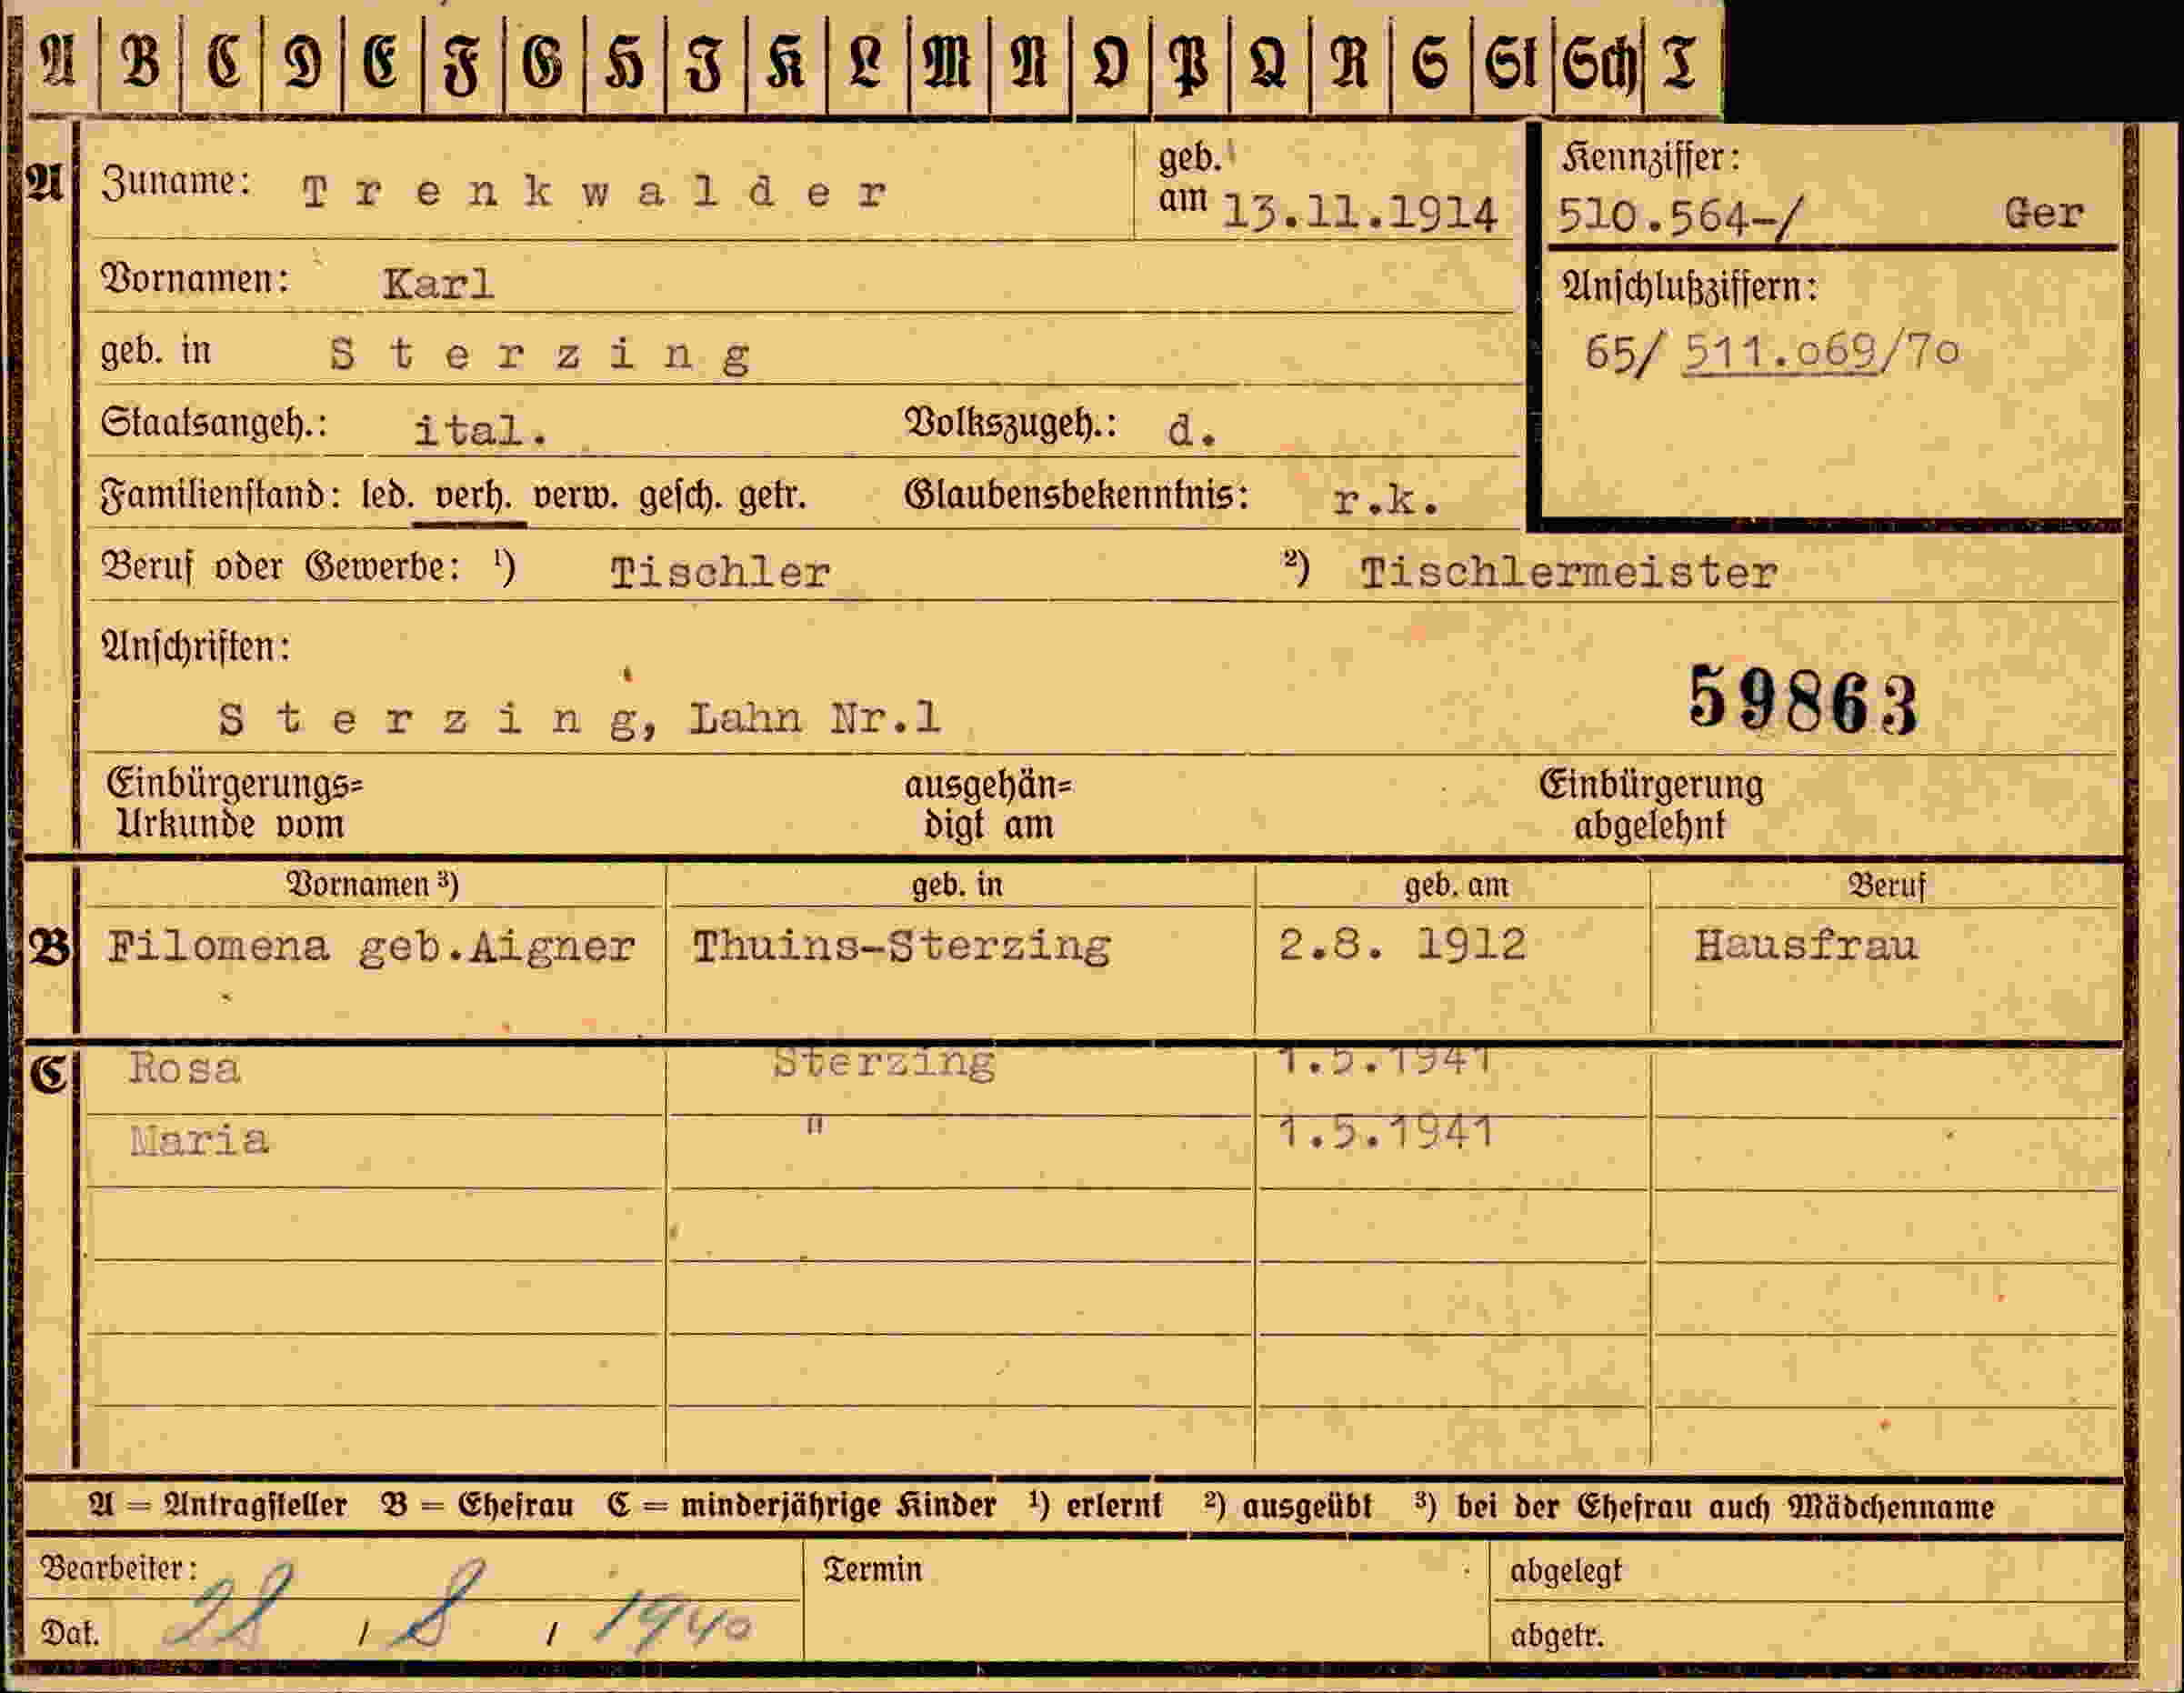 A B C D E F G H I K L M N O P Q R S St Sch T
A Zuname: Trenkwalder geb. am 13.11.1914
Kennziffer:
510.564-/ Ger
Vornamen: Karl
Anschlußziffern:
65/ 511.069/70
geb. in Sterzing
Staatsangeh.: ital. Volkszugeh.: d.
Familienstand: led. verh. verw. gesch. getr. Glaubensbekenntnis: r.k.
Beruf oder Gewerbe: ¹) Tischler ²) Tischlermeister
Anschriften:
59863
Sterzing, Lahn Nr.1
Einbürgerungs= ausgehän= Einbürgerung
Urkunde vom digt am abgelehnt
Vornamen ³) geb. in geb. am Beruf
B Filomena geb.Aigner Thuins-Sterzing 2.8. 1912 Hausfrau
C Rosa Sterzing 1.5.1941
Maria " 1.5.1941
A = Antragsteller B = Ehefrau C = minderjährige Kinder ¹) erlernt ²) ausgeübt ³) bei der Ehefrau auch Mädchenname
Bearbeiter: Termin abgelegt
Dat. 28 / 8 / 1940 abgetr.